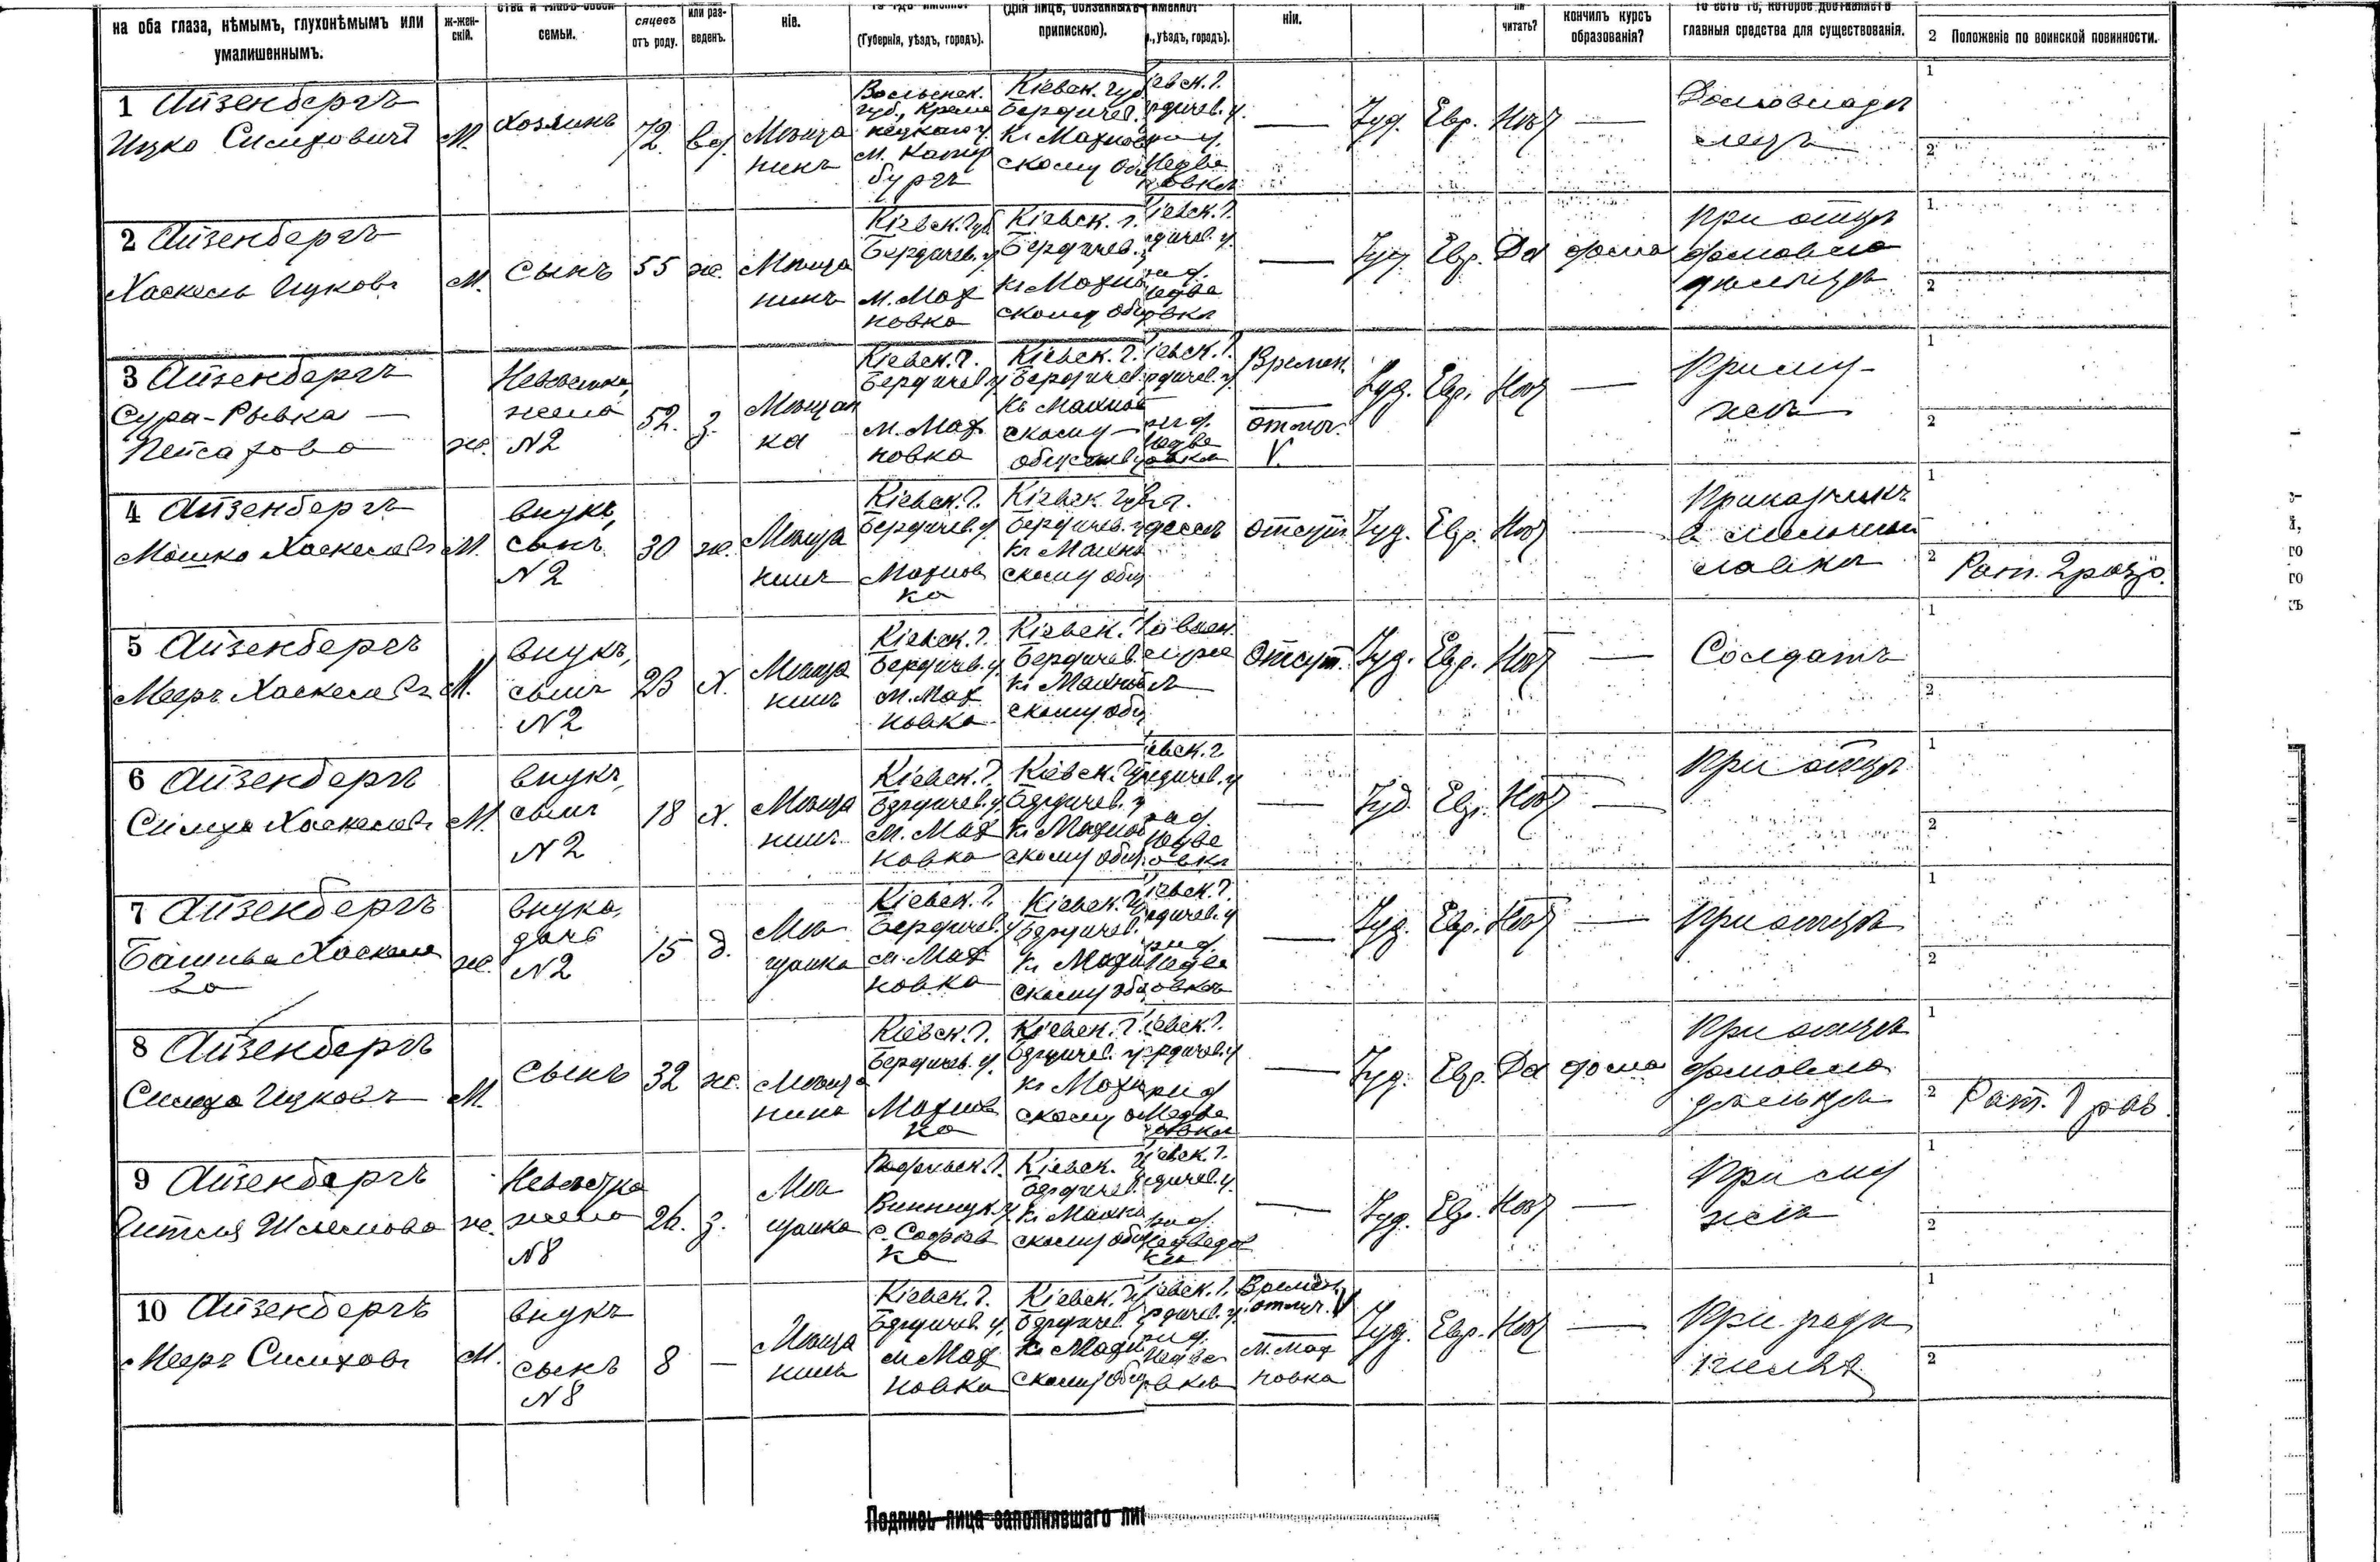 на оба глаза, нѣмымъ, глухонѣмымъ или умалишеннымъ.
ж-жен-
скій.
семьи.
сяцевъ
отъ роду.
или раз-
веденъ.
ніе.
(Губернія, уѣздъ, городъ).
(для лицъ, обязанныхъ
припискою).
., уѣздъ, городъ).
ніи.
читать?
кончилъ курсъ
образованія?
то есть то, которое доставляетъ
главныя средства для существованія.
2 Положеніе по воинской повинности.
1 Айзенбергъ
Ицко Симховичъ
М.
хозяинъ
72
вд.
Мѣща
нинъ
Волынск.
губ., Креме
нецкаго у.
м.
бургъ
Кіевск. губ
Бердичев.
къ Махнов
скому об
іевск. г.
рдичев. у.
Медве
овка
—
Іуд.
Евр.
Нѣт
—
Домовладѣ
лецъ
1
2
2 Айзенбергъ
Хаскель Ицковъ
М.
сынъ
55
ж.
Мѣща
нинъ
Кіевск. губ
Бердичев. у
м. Мах
новка
Кіевск. г.
Бердичев.
къ Махно
скому общ
іевск. г.
дичев. у.
едве
овка
—
Іуд.
Евр.
Да
дома
при отцѣ
домовла
дѣльцѣ
1
2
3 Айзенбергъ
Сура-Рывка
Пейсахова
ж.
Невѣстка,
жена
N2
52.
з.
Мѣщан
ка
Кіевск. г.
Бердичев. у
м. Мах
новка
Кіевск. г.
Бердичев.
къ Махнов
скому
обществу
іевск. г.
рдичев. у.
едве
овка
Времен.
отлуч.
V.
Іуд.
Евр.
Нѣт
—
При му-
жѣ
1
2
4 Айзенбергъ
Мошко Хаскелевъ
М.
внукъ,
сынъ
N2
30
ж.
Мѣща
нинъ
Кіевск. г.
Бердичев. у.
Махнов
ка
Кіевск. губ
Бердичев. у
къ Махно
скому общ
дессѣ
отсут.
Іуд.
Евр.
Нѣт
—
Приказчикъ
въ
лавкѣ
1
2 Рат. 2 разр.
5 Айзенбергъ
Мееръ Хаскелевъ
М.
внукъ,
сынъ
N2
23
х.
Мѣща
нинъ
Кіевск. г.
Бердичев. у.
м. Мах
новка
Кіевск.
Бердичев.
къ Махнов
скому общ
Отсут.
Іуд.
Евр.
Нѣт
—
Солдатъ
1
2
6 Айзенбергъ
Симха Хаскелевъ
М.
внукъ,
сынъ
N2
18
х.
Мѣща
нинъ
Кіевск. г.
Бердичев. у
м. Мах
новка
Кіевск. г
Бердичев. у
къ Махнов
скому общ
евск. г
рдичев. у
едве
овка
—
Іуд.
Евр.
Нѣт
—
При отцѣ
1
2
7 Айзенбергъ
Башива Хаскеле
ва
ж.
внука,
дочь
N2
15
д.
Мѣ
щанка
Кіевск. г.
Бердичев. у
м. Мах
новка
Кіевск. г
Бердичев.
къ Махн
скому общ
іевск. г.
дичев. у
едве
овка
—
Іуд.
Евр.
Нѣт
—
При отцѣ
1
2
8 Айзенбергъ
Симха Ицковъ
М.
сынъ
32
ж.
Мѣща
нинъ
Кіевск. г.
Бердичев. у.
Махнов
ка
Кіевск. г.
Бердичев. у
къ Махн
скому о
іевск. г.
рдичев. у
Медве
овка
—
Іуд.
Евр.
Да
дома
При отцѣ
домовла
дѣльцѣ
1
2 Рат. 1 раз.
9 Айзенбергъ
Шлемова
ж.
Невѣстка
жена
N8
26.
з.
Мѣ
щанка
Подольск. г.
Винницк. у
ка
Кіевск. г
Бердичев.
къ Махно
скому общ
іевск. г.
дичев. у.
едведов
ка
—
Іуд.
Евр.
Нѣт
—
При му
жѣ
1
2
10 Айзенбергъ
Мееръ Симховъ
М.
внукъ
сынъ
N8
8
—
Мѣща
нинъ
Кіевск. г.
Бердичев. у.
м. Мах
новка
Кіевск. г
Бердичев.
къ Махн
скому общ
іевск. г.
рдичев. у.
едве
овка
Времен.
отлуч. V
м. Мах
новка
Іуд.
Евр.
Нѣт
—
При роди
теляхъ
1
2
Подпись лица заполнявшаго ли